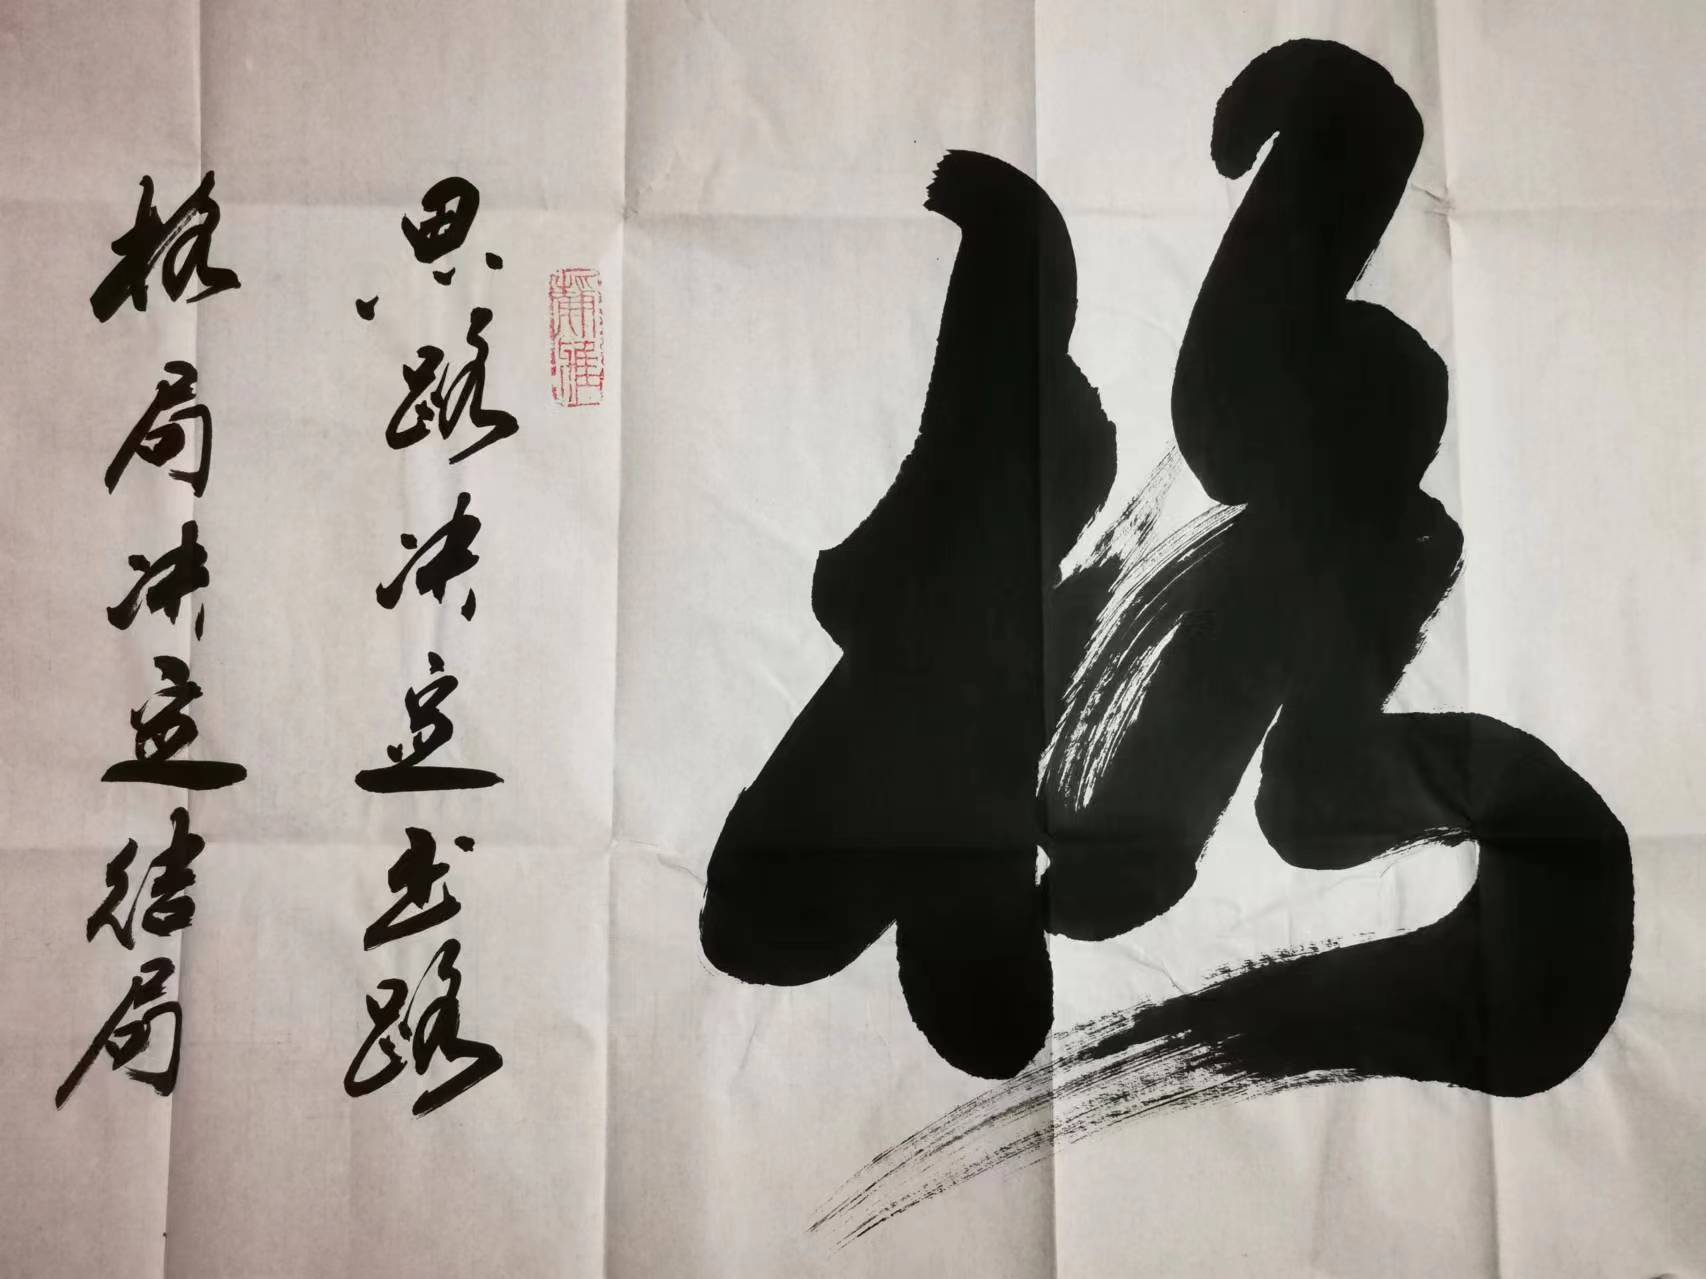 思路决定出路
格局决定结局